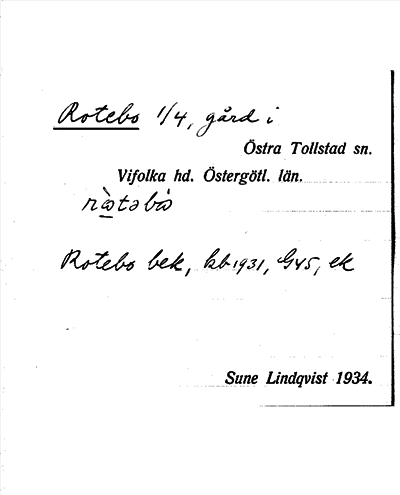 Rotebo 1/4, gård i
Östra Tollstad sn.
Vifolka hd. Östergötl. län.
Rotebo bek, kb 1931, G45, ek
Sune Lindqvist 1934.